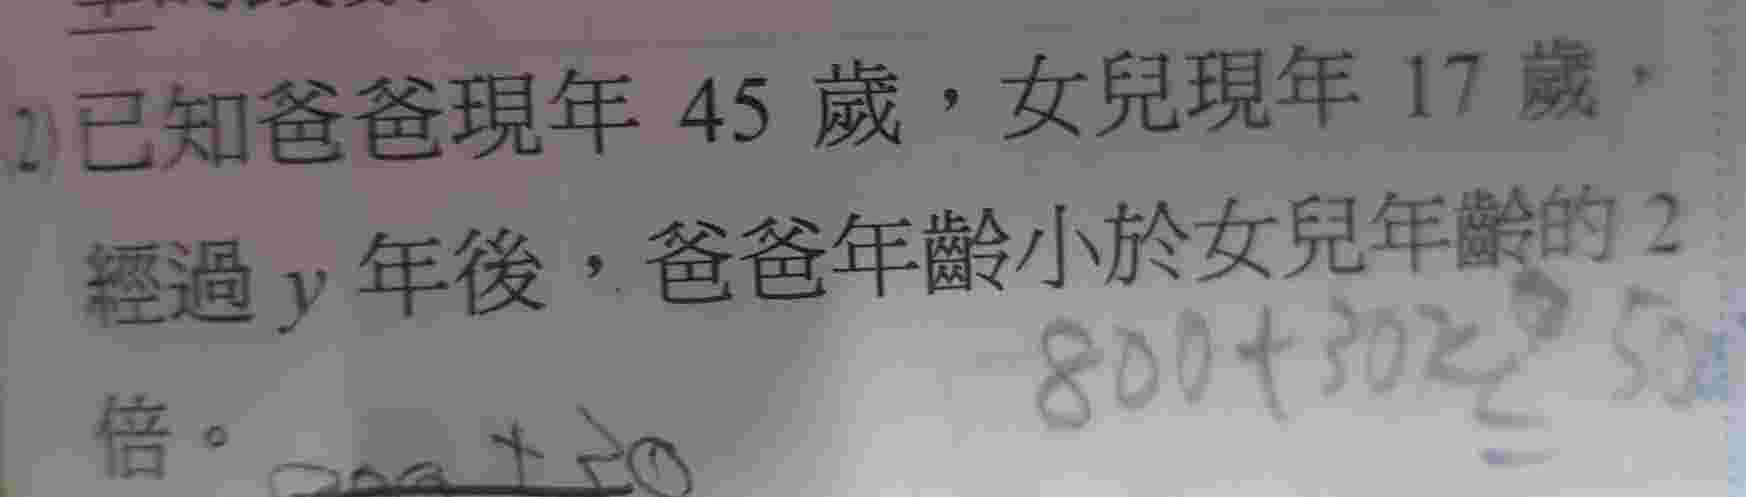 (2)已知爸爸現年 45 歲，女兒現年 17 歲，
經過 y 年後，爸爸年齡小於女兒年齡的 2
倍。
800+30x
50